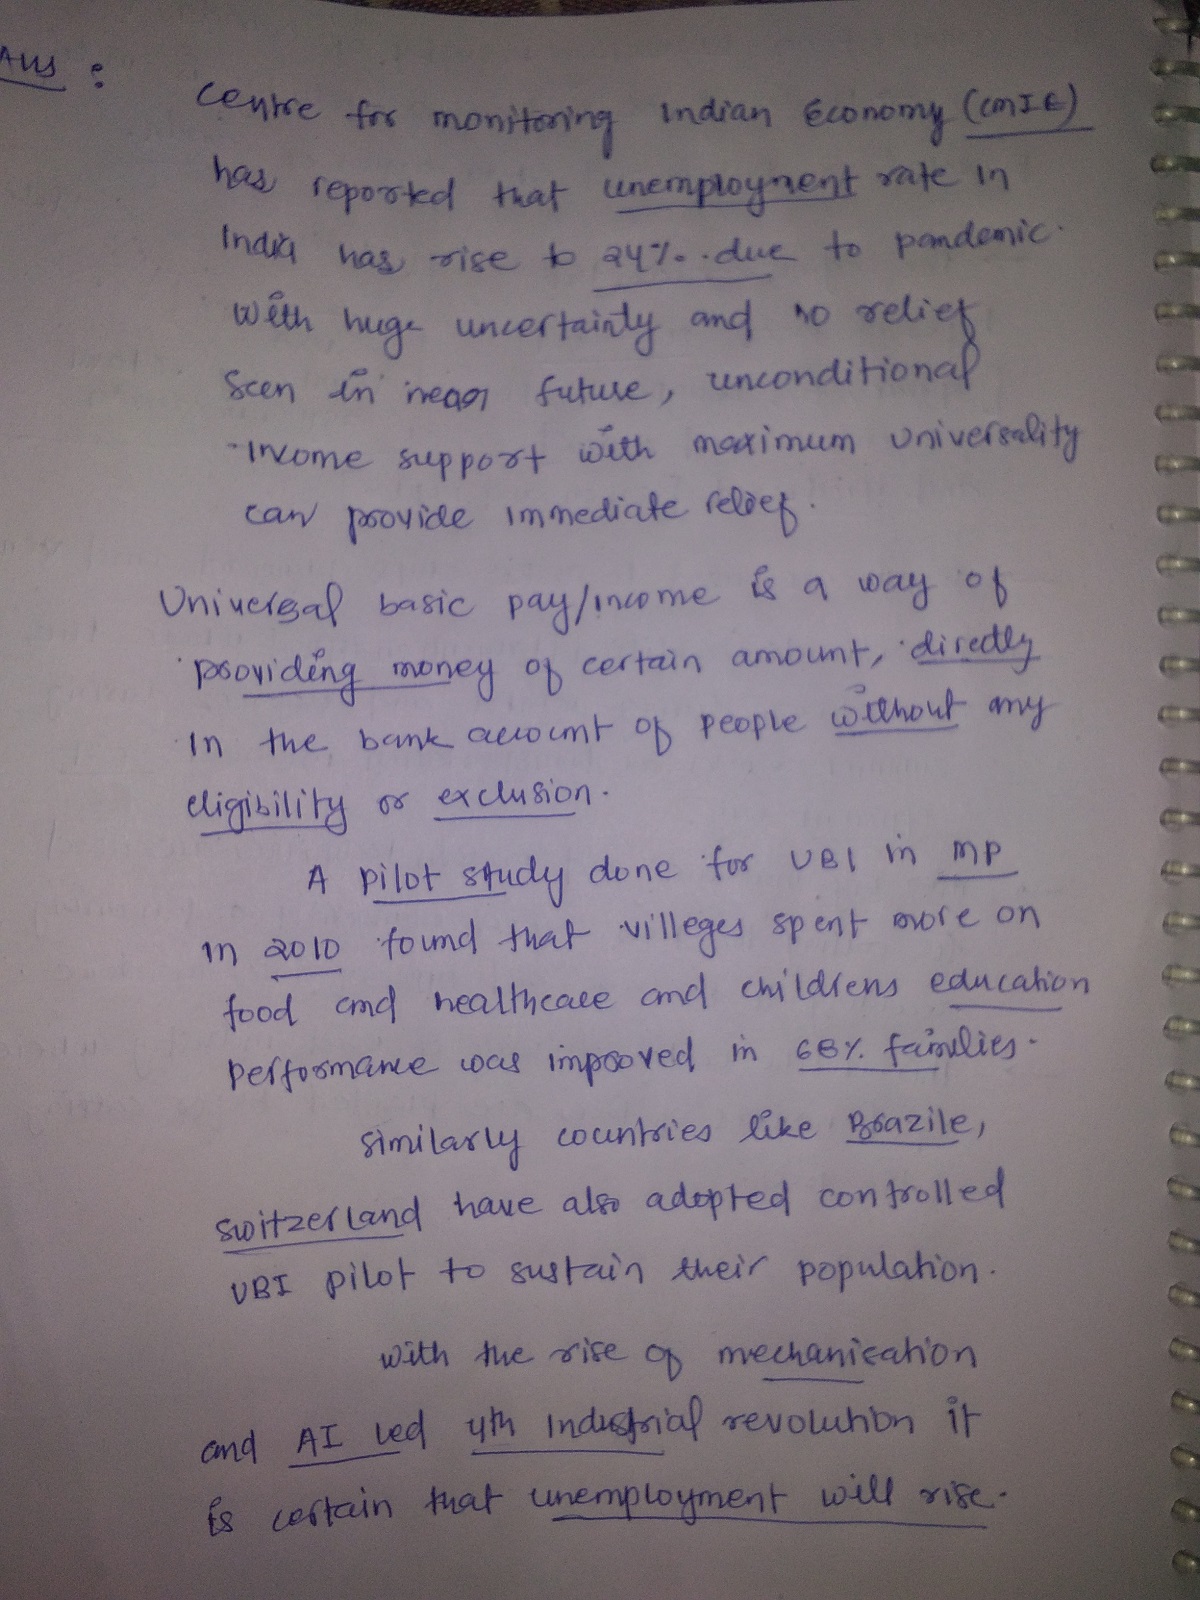 Ans :
Centre for monitoring Indian Economy (CMIE)
has reported that unemployment rate in
India has rise to 24% due to pandemic.
With huge uncertainty and no relief
seen in near future, unconditional
income support with maximum universality
can provide immediate relief.
Universal basic pay/income is a way of
providing money of certain amount, directly
in the bank account of people without any
eligibility or exclusion.
A pilot study done for UBI in MP
in 2010 found that villeges spent more on
food and healthcare and childrens education
performance was improved in 68% families.
Similarly countries like Brazile,
Switzerland have also adopted controlled
UBI pilot to sustain their population.
with the rise of mechanication
and AI led 4th Industrial revolution it
is certain that unemployment will rise.